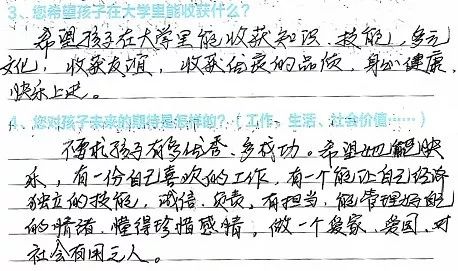 3、您希望孩子在大学里能收获什么?
希望孩子在大学里能收获知识、技能,多元
文化,收获友谊,收获优良的品质,身心健康,
快乐上进。
4、您对孩子未来的期待是怎样的?(工作、生活、社会价值……)
不要求孩子有多优秀、多成功。希望她能快
乐,有一份自己喜欢的工作,有一个能让自己经济
独立的技能,诚信、负责、有担当,能管理好自己
的情绪,懂得珍惜感情,做一个爱家、爱国、对
社会有用之人。